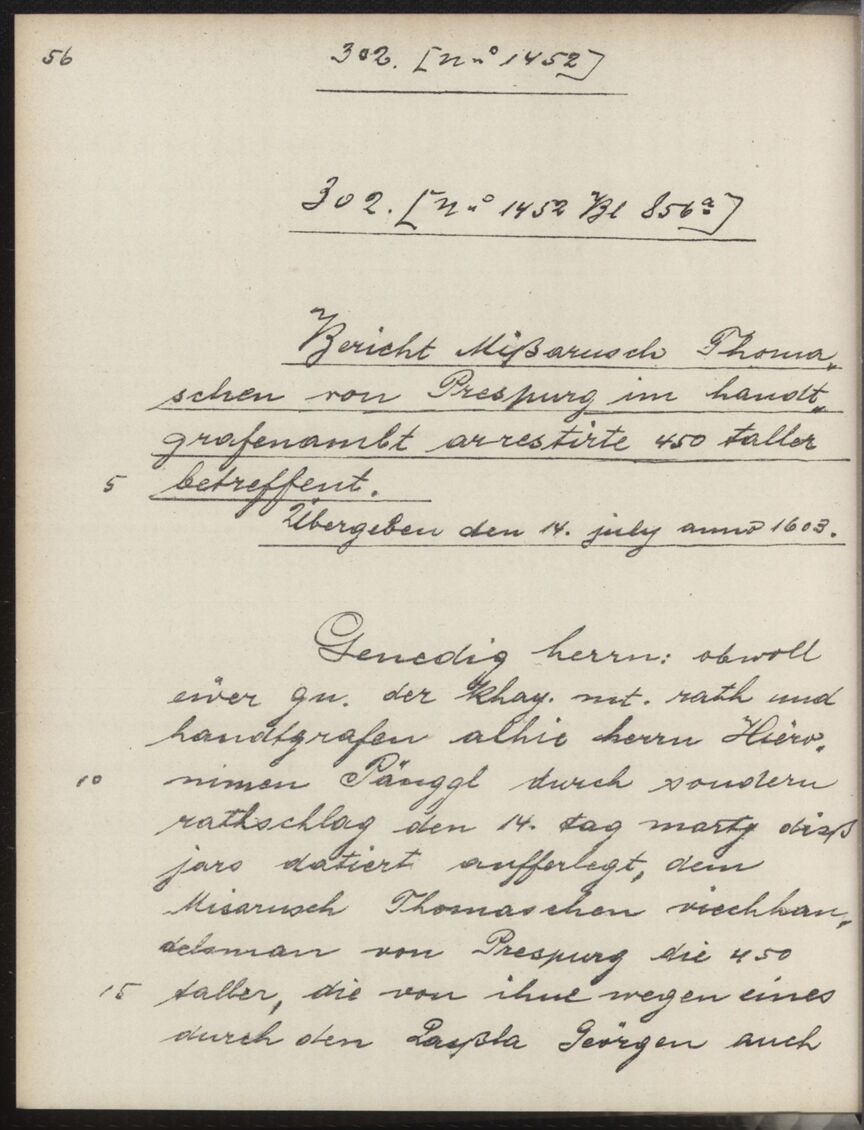 56
302. [No 1452]
302. [No 1452 Bl 856a]
Bericht Mißarusch Thoma„
schen von Prespurg im handt„
grafenambt arrestirte 450 taller
5 betreffent.
Übergeben den 14. july anno 1603.
Genedig herrn: obwoll
eüer gn. der khay. mt. rath und
handtgrafen alhie herrn Hiero„
10 nimen Pänggl durch sondern
rathschlag den 14. tag marty diß
jars datiert aufferlegt, dem
Misarusch Thomaschen viechhan„
delsman von Prespurg die 450
15 taller, die von ihne wegen eines
durch den Laußla Geörgen auch